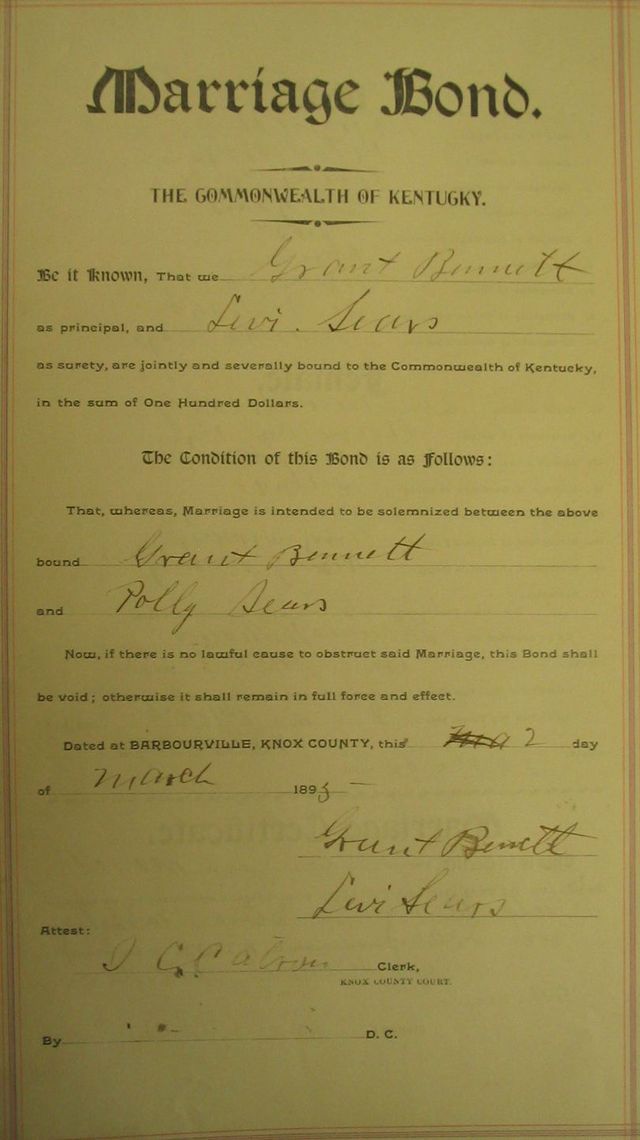 Marriage Bond.
THE COMMONWEALTH OF KENTUCKY.
Be it Known, That we Grant Bennett
as principal, and Levi. Sears
as surety, are jointly and severally bound to the Commonwealth of Kentucky,
in the sum of One Hundred Dollars.
The Condition of this Bond is as Follows:
That, whereas, Marriage is intended to be solemnized between the above
bound Grant Bennett
and Polly Sears
Now, if there is no lawful cause to obstruct said Marriage, this Bond shall
be void; otherwise it shall remain in full force and effect.
Dated at BARBOURVILLE, KNOX COUNTY, this 2 day
of March 189
Grant Bennett
Levi Sears
Attest:
Clerk,
KNOX COUNTY COURT.
By D. C.